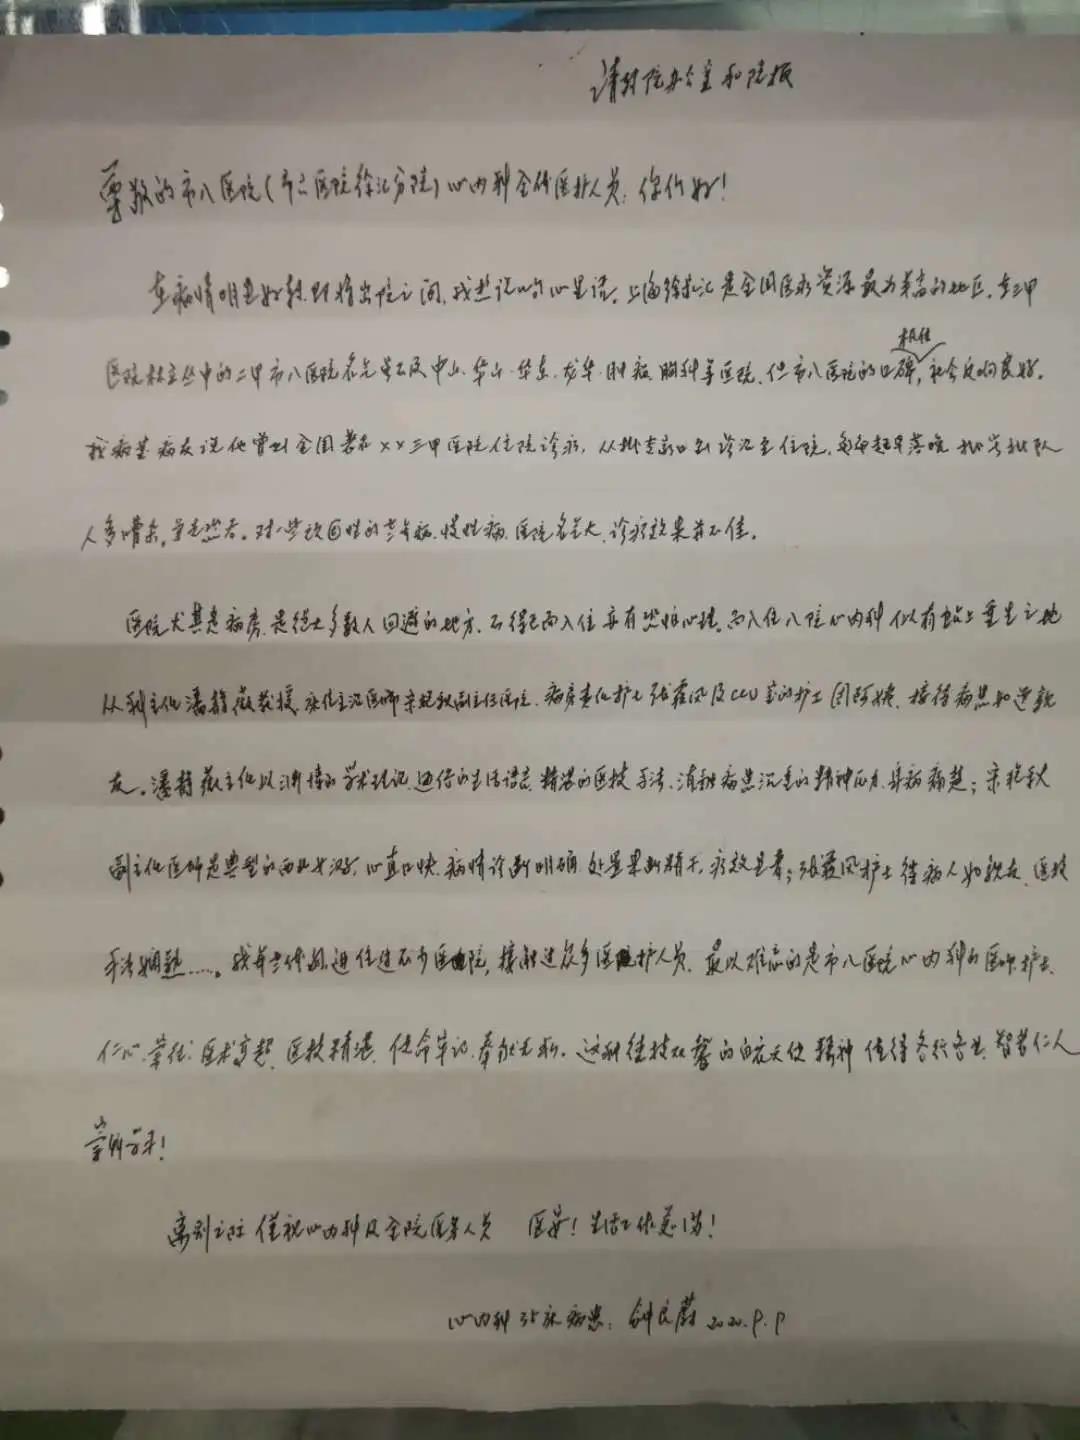 请转院办公室和院报
尊敬的市八医院(市六医院徐汇分院)心内科全体医护人员:你们好!
在病情明显好转即将出院之间,我想说的心里话。上海徐汇是全国医疗资源最为丰富的地区,在三甲
医院林立丛中的二甲市八医院名气虽不及中山、华山、华东、龙华、肿瘤、胸科等医院,但市八医院的口碑极佳,社会反响良好。
我病室病友说他曾到全国著名××三甲医院住院诊疗,从排专家门诊至住院,每每起早落晚排长队
人多嘈杂,对一些顽固性的老年病、慢性病,医院名气大,诊疗效果并不佳。
医院尤其是病房,是绝大多数人回避的地方,不得已而入住亦有恐惧心理,而入住八院心内科似有踏上重生之地
从科主任潘静薇教授,床位主治医师宋艳秋副主任医师,病房责任护士张霞凤及CCU室的护士团阿姨,接待病患如逢亲
友。潘静薇主任以渊博的学术理论,通俗的生活语言,精湛的医技手法,消融病患沉重的精神压力、身病痛楚;宋艳秋
副主任医师是典型的西北女汉子,心直口快,病情诊断明确,处置果断精干,疗效显著;张霞凤护士待病人如亲友,医技
手法娴熟……。我年老体弱,进住过不少医院,接触过众多医院护人员,最以难忘的是市八医院心内科的医师、护士、
仁心、崇德、医术高超、医技精湛、使命牢记、奉献无私。这种德技双馨的白衣天使精神值得各行各业、智者仁人
崇尚学习!
离别之际 谨祝心内科及全院医务人员 医安!生活工作愉悦!
心内科35床病患: 2020.9.9